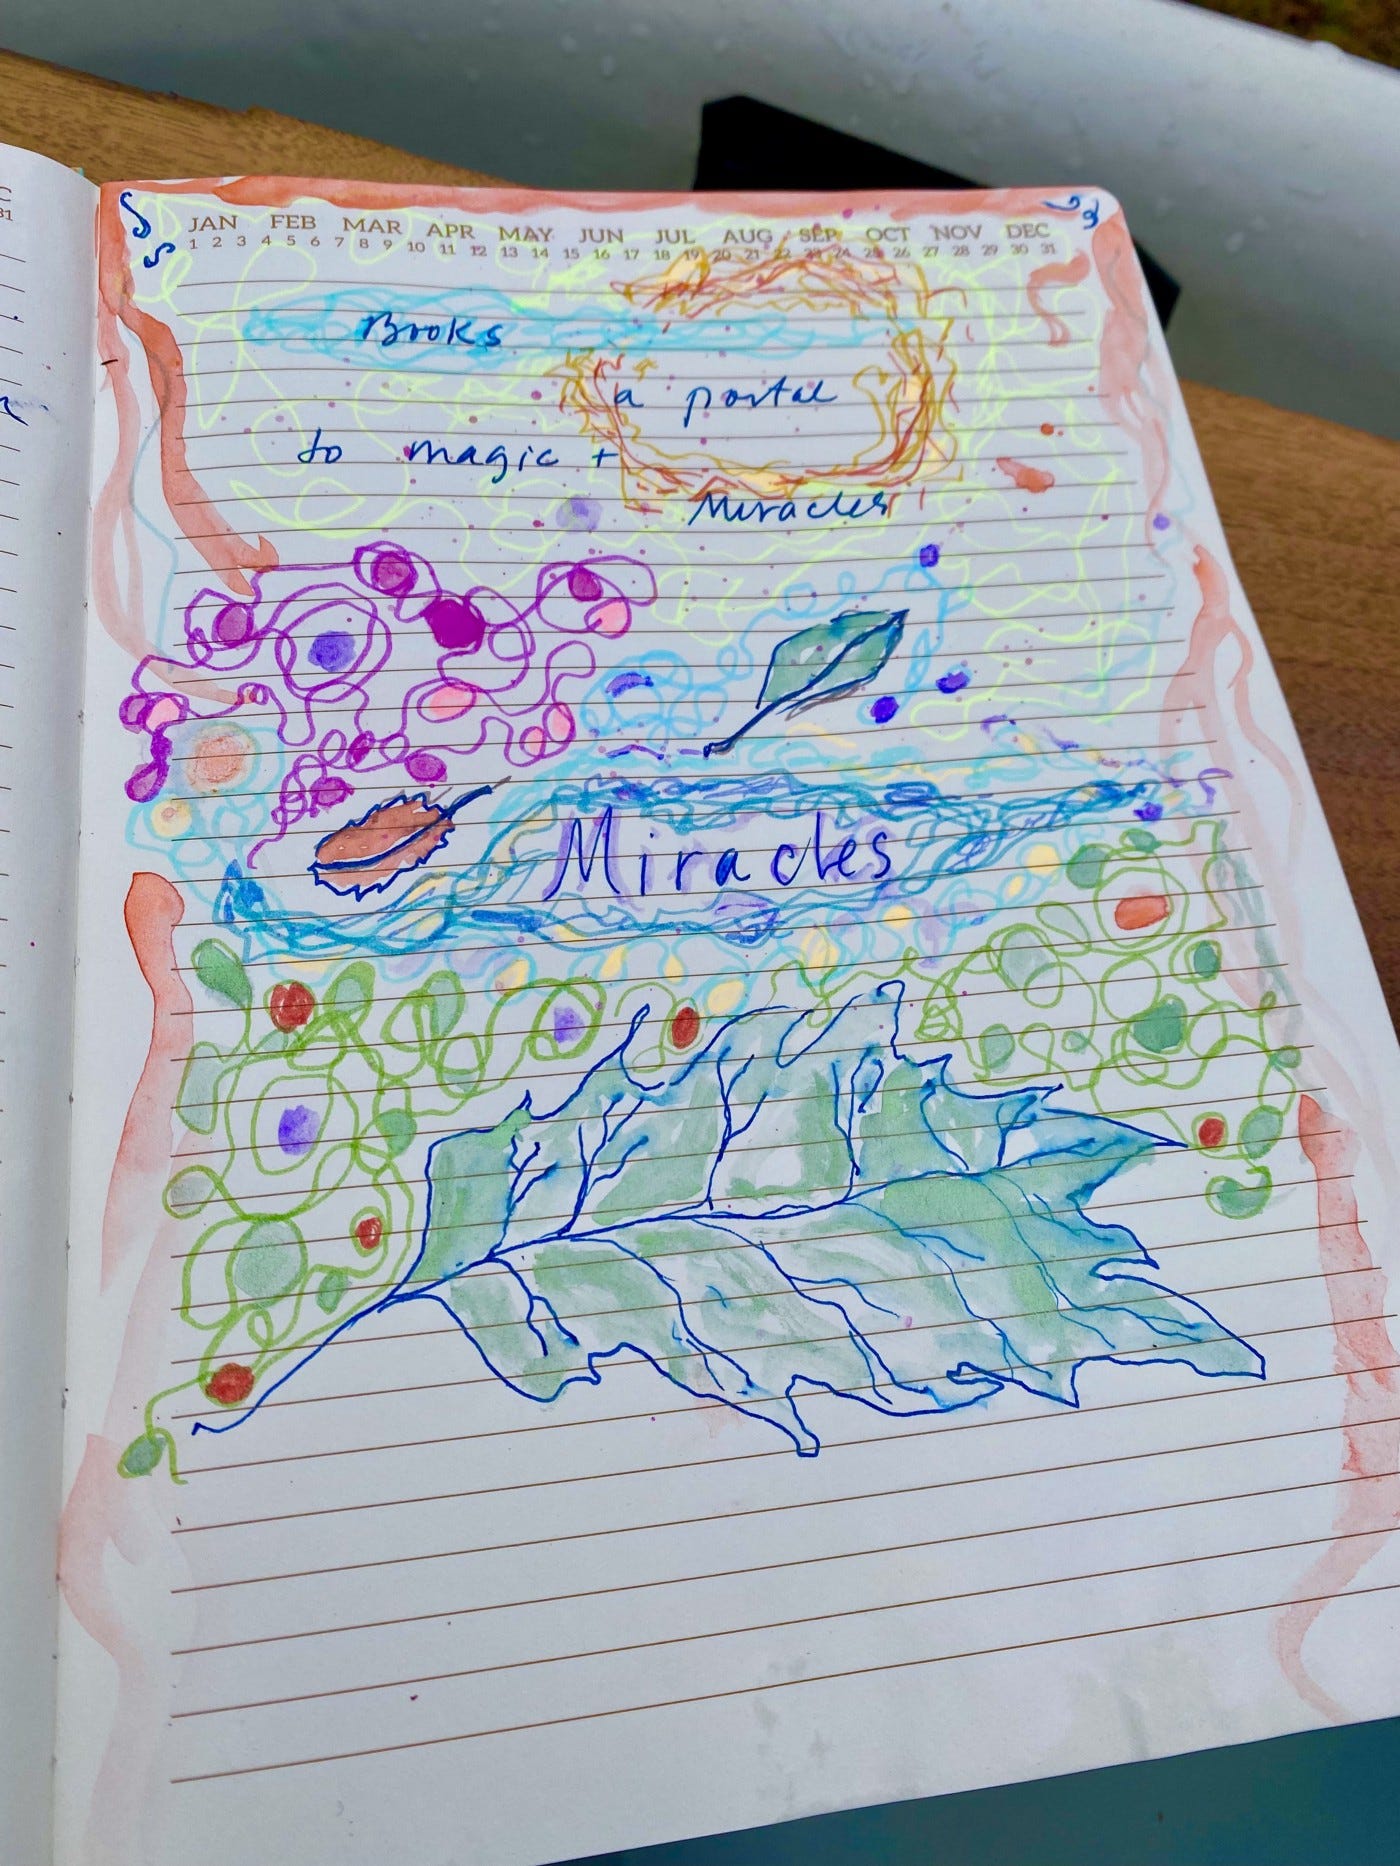 JAN FEB MAR APR MAY JUN JUL AUG SEP OCT NOV DEC
1 2 3 4 5 6 7 8 9 10 11 12 13 14 15 16 17 18 19 20 21 22 23 24 25 26 27 28 29 30 31
Books
a portal
to magic +
Miracles
Miracles